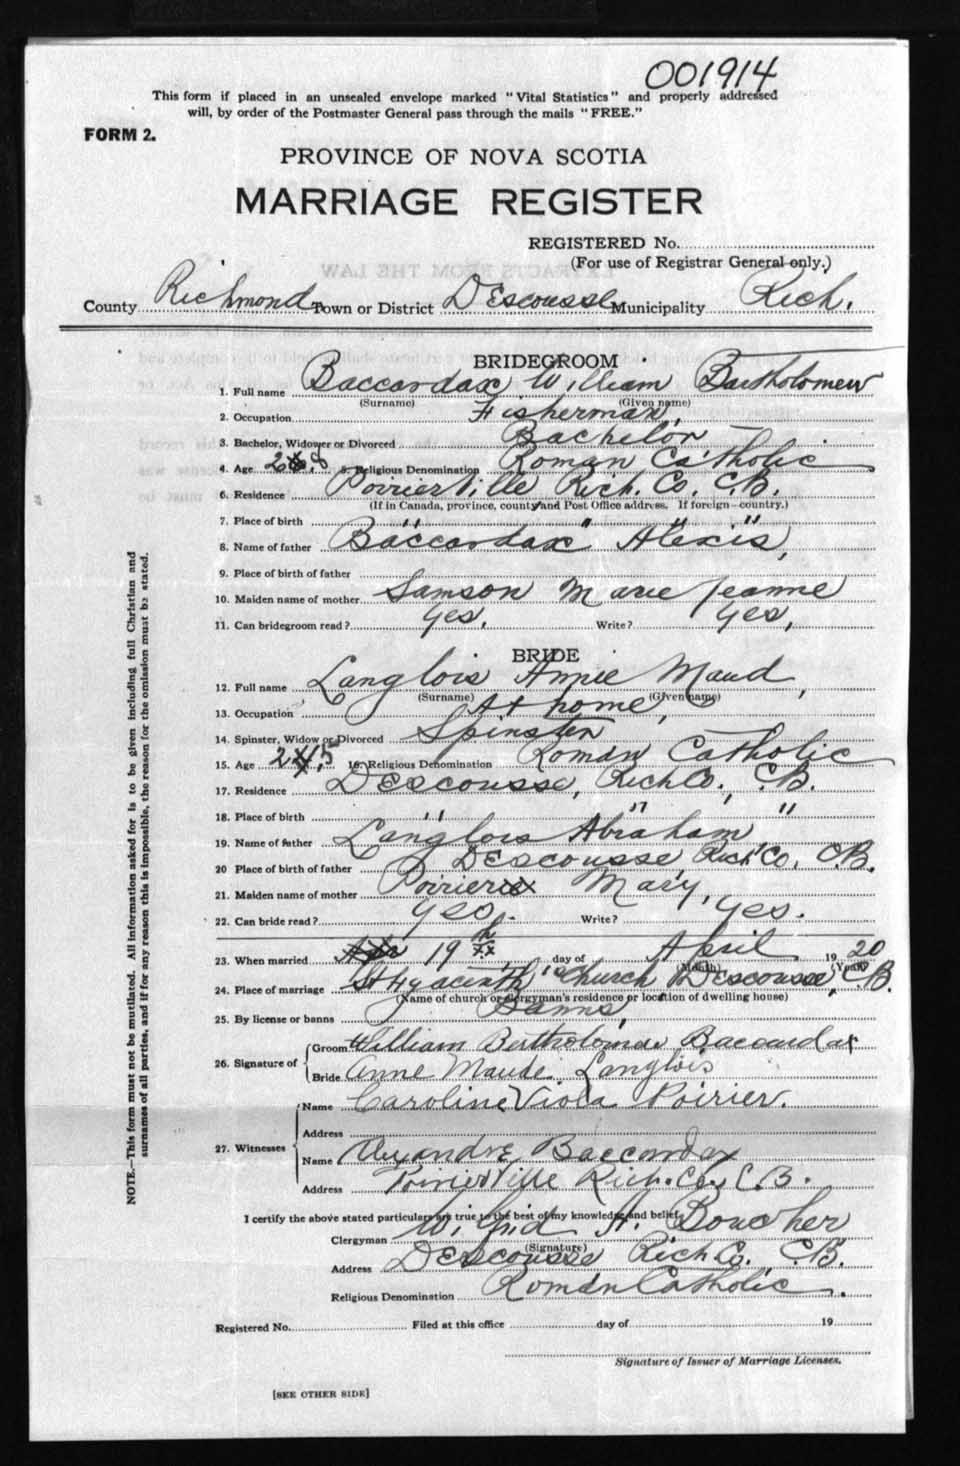 001914
This form if placed in an unsealed envelope marked "Vital Statistics" and properly addressed
will, by order of the Postmaster General pass through the mails "FREE."
FORM 2.
PROVINCE OF NOVA SCOTIA
MARRIAGE REGISTER
REGISTERED No.
(For use of Registrar General only.)
County Richmond Town or District DEscousse Municipality Rich.
BRIDEGROOM
1. Full name Baccardax William Bartholomew
(Surname) (Given name)
2. Occupation Fisherman,
3. Bachelor, Widower or Divorced Bachelor
4. Age 28 5. Religious Denomination Roman Catholic
6. Residence PoirierVille Rich. Co. C.B.
(If in Canada, province, county and Post Office address. If foreign—country.)
7. Place of birth " " " "
8. Name of father Baccardax Alexis,
9. Place of birth of father
10. Maiden name of mother Samson Marie Jeanne
11. Can bridegroom read? Yes. Write? Yes,
BRIDE
12. Full name Langlois Annie Maud,
(Surname) (Given name)
13. Occupation At home,
14. Spinster, Widow or Divorced Spinster
15. Age 25 16. Religious Denomination Roman Catholic
17. Residence DEscousse, Rich Co., C.B.
18. Place of birth " " "
19. Name of father Langlois Abraham
20 Place of birth of father DEscousse Rich Co, C.B.
21. Maiden name of mother Poirier Mary,
22. Can bride read? Yes. Write? Yes.
23. When married 19th day of April 1920
(Month) (Year)
24. Place of marriage St Hyacinth Church DEscousse, C.B.
(Name of church or clergyman's residence or location of dwelling house)
25. By license or banns Banns,
26. Signature of { Groom William Bertholomew Baccardax
Bride Anne Maude Langlois
27. Witnesses { Name Caroline Viola Poirier.
Address
Name Alexandre Baccardax
Address PoirierVille Rich. Co., C.B.
I certify the above stated particulars are true to the best of my knowledge and belief.
Clergyman Wilfrid A. Boucher
(Signature)
Address DEscousse Rich Co. C.B.
Religious Denomination Roman Catholic.
Registered No. Filed at this office day of 19
Signature of Issuer of Marriage Licenses.
[SEE OTHER SIDE]
NOTE.—This form must not be mutilated. All information asked for is to be given including full Christian and
surnames of all parties, and if for any reason this is impossible, the reason for the omission must be stated.